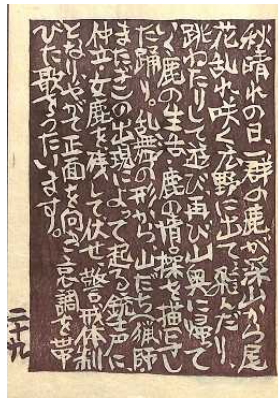 秋晴れの日、一群の鹿が深山から尾
花乱れ咲く広野に出て飛んだり、
跳ねたりして遊び再び山奥に帰て
いく鹿の生活、鹿の情操を描写し
た踊り。乱舞の形から山だち(猟師
またぎ)の出現によって起る銃声に
仲立、女鹿を残して伏せ警戒体制
となりやがて正面を向き哀調を帯
びた歌をうたいます。
二十九